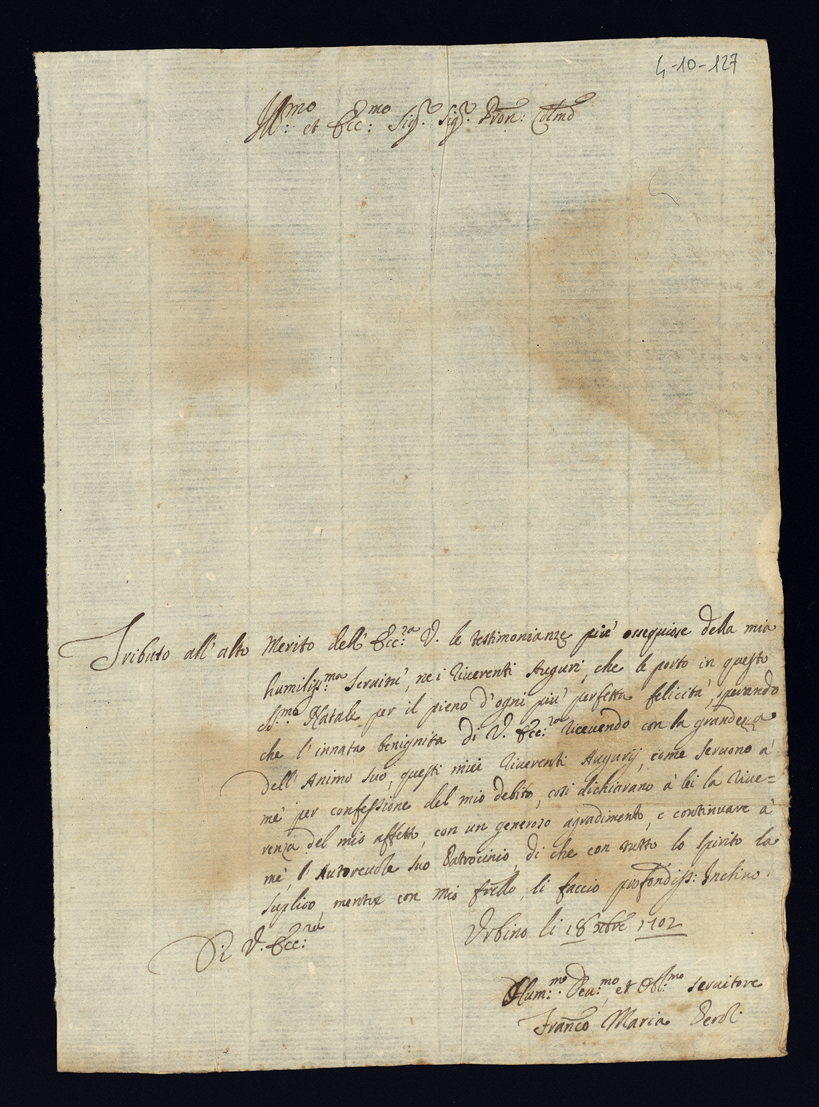 4-10-127
Ill:mo et Ecc:mo Sig.r Sig.r Pron: Colmo
Tributo all'alto Merito dell'Ecc:za V. le testimonianze più ossequiose della mia
humiliss:ma Servitù, ne i riverenti Auguri, che le porto in questo
S:mo Natale per il pieno d'ogni più perfetta felicità, sperando
che l'innata benignità di V. Ecc:za ricevendo con la grandezza
dell'Animo suo, questi miei riverenti Augurij, come servono à
mè per confessione del mio debito, così dichiarano à lei la rive=
renza del mio affetto, con un generoso agradimento, e continuare à
mè, l'Autorevole suo Patrocinio, di che con tutto lo spirito la
suplico, mentre con mio frello, li faccio profondiss: Inchino.
Di V. Ecc:za
Urbino li 18 Xbre 1702
Hum:mo Dev:mo, et Obl:mo Servitore
Franco Maria